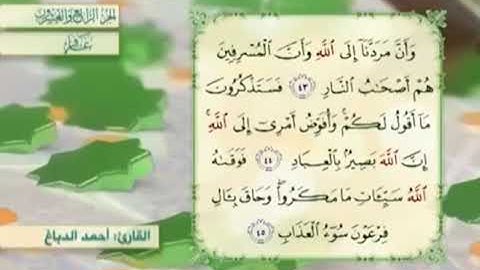 الجزء الرابع والعشرون
وَأَنَّ مَرَدَّنَآ إِلَى ٱللَّهِ وَأَنَّ ٱلْمُسْرِفِينَ
هُمْ أَصْحَٰبُ ٱلنَّارِ ٤٣ فَسَتَذْكُرُونَ
مَآ أَقُولُ لَكُمْ ۚ وَأُفَوِّضُ أَمْرِىٓ إِلَى ٱللَّهِ ۚ
إِنَّ ٱللَّهَ بَصِيرٌۢ بِٱلْعِبَادِ ٤٤ فَوَقَىٰهُ
ٱللَّهُ سَيِّـَٔاتِ مَا مَكَرُوا۟ ۖ وَحَاقَ بِـَٔالِ
فِرْعَوْنَ سُوٓءُ ٱلْعَذَابِ ٤٥
القارئ: أحمد الدباغ